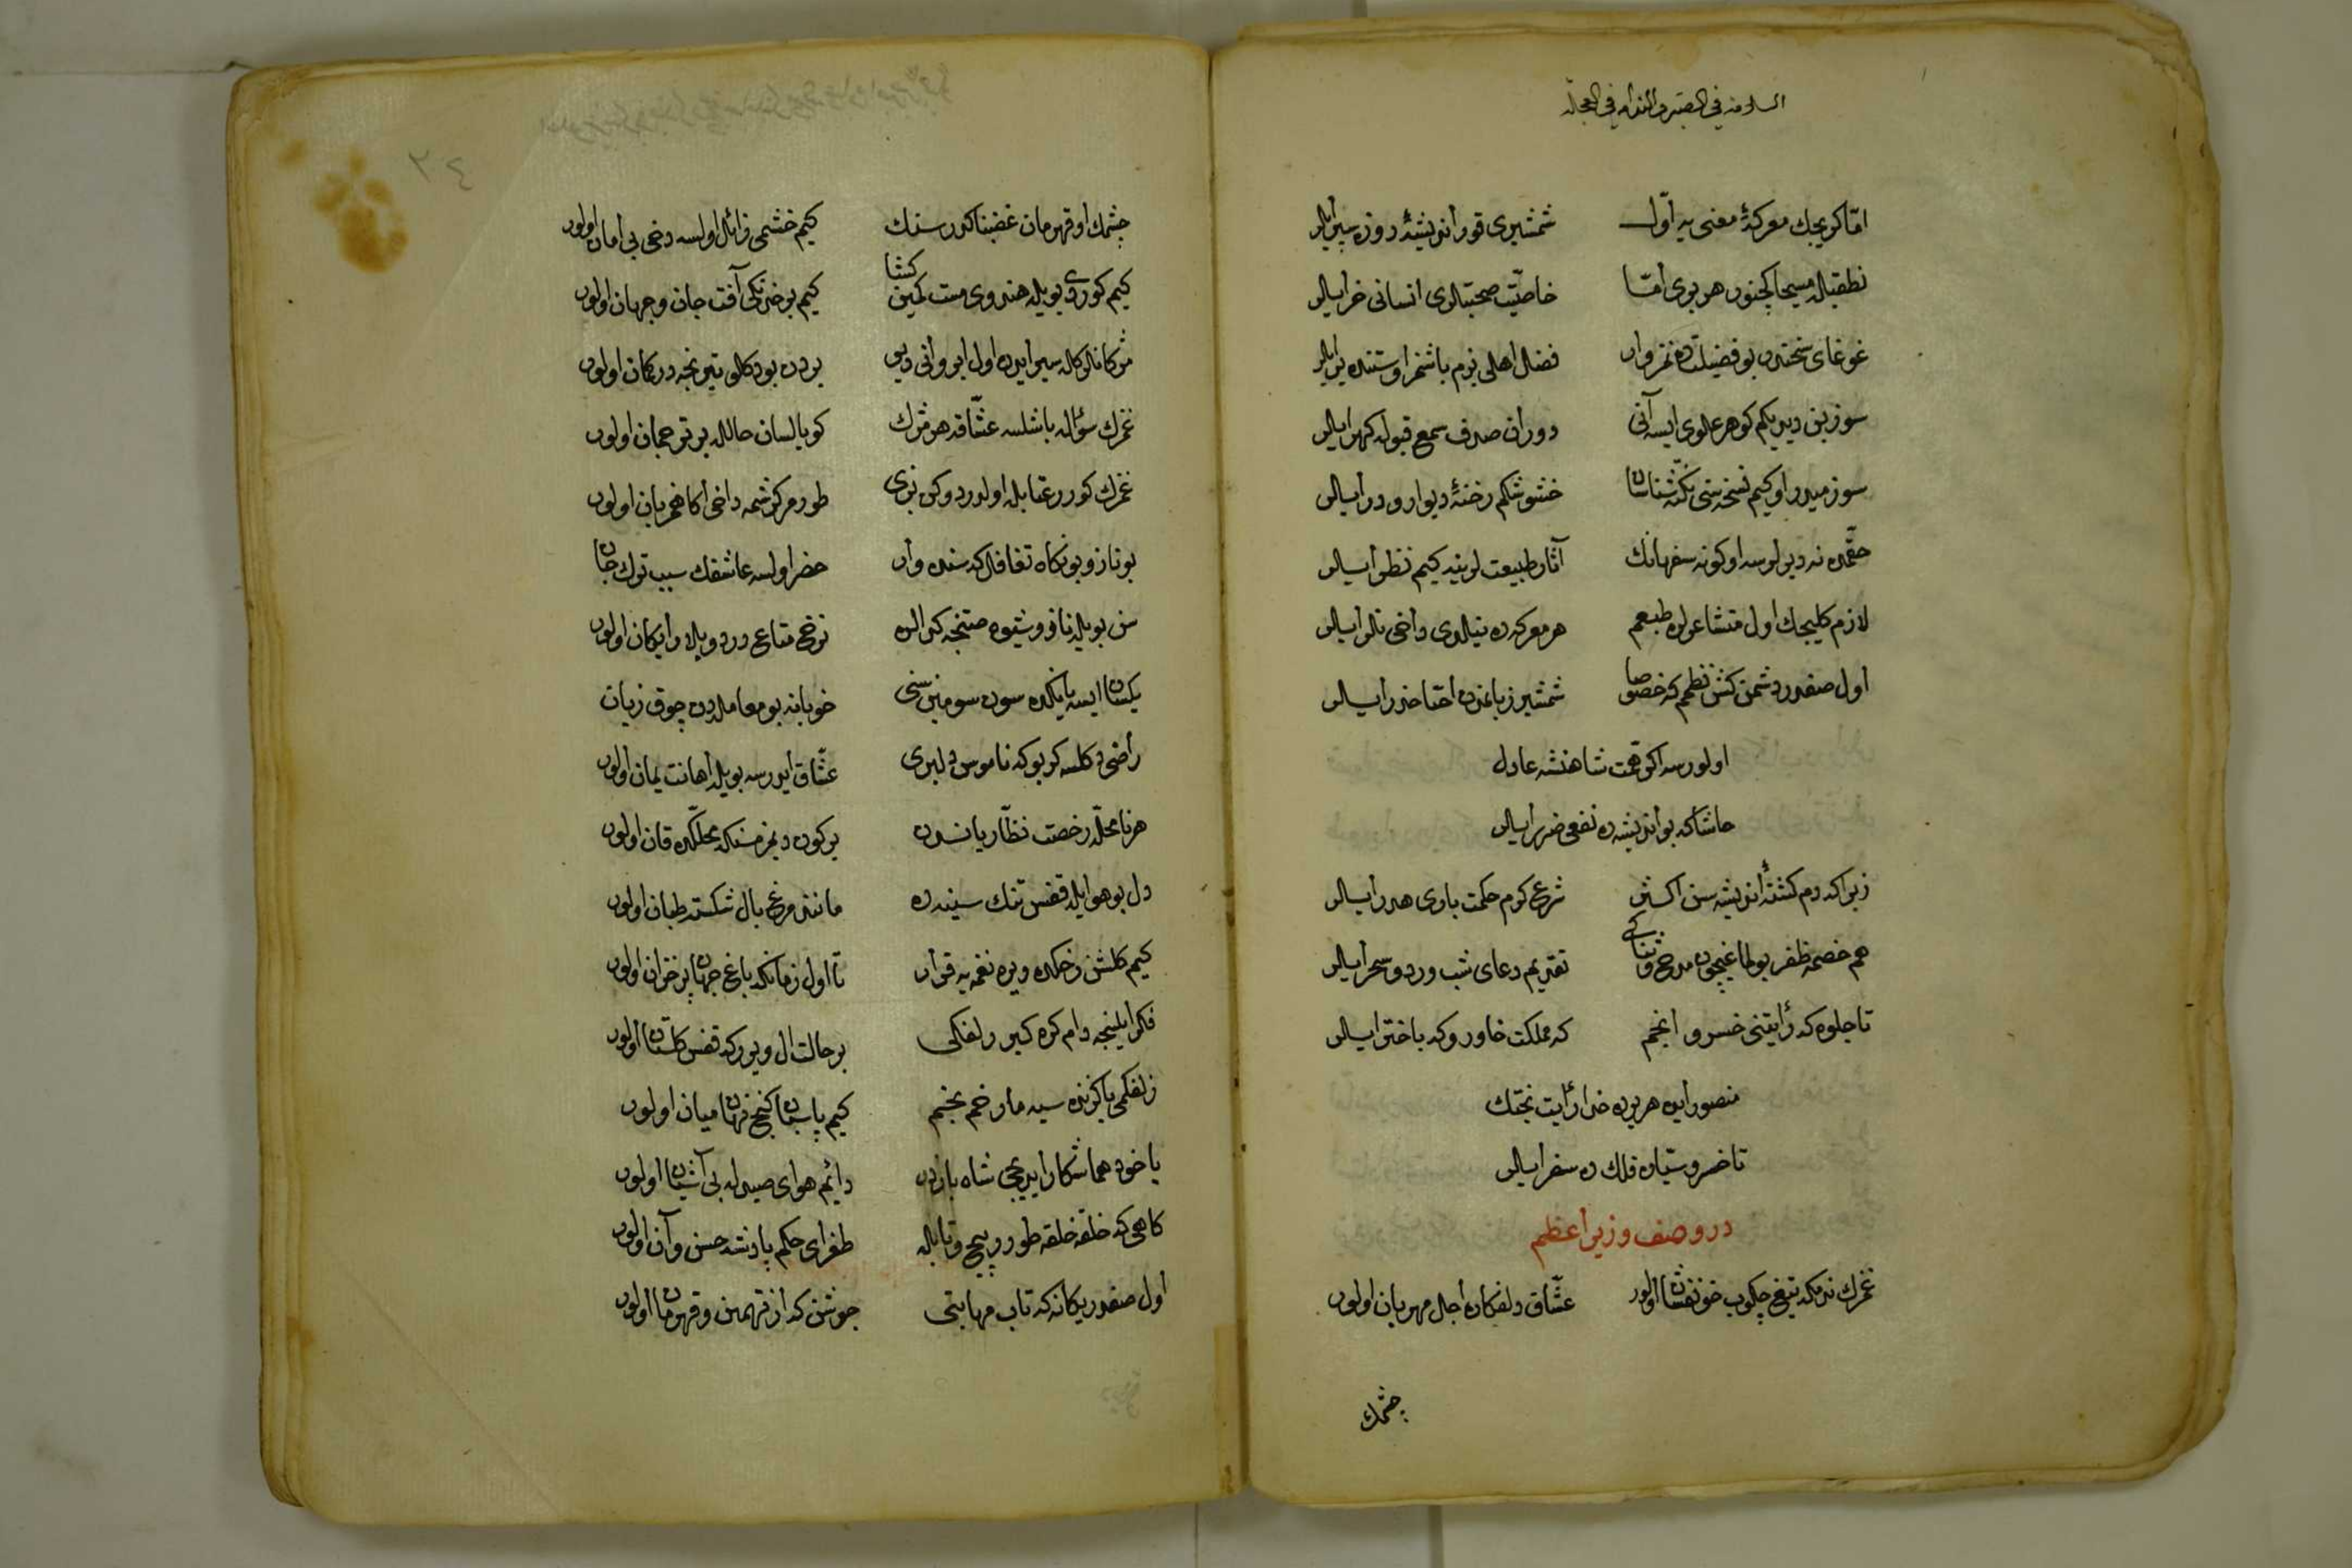 السلامة في الصبر والندامة في العجلة
امّا كريجك معركهٔ معنی یه اوّل شمشیری قور اندیشهٔ دوزه سپر ایلر
نطقیله مسیحا کچنور هر بری امّا خاصیّت صحبتلری انسانی خر ایلر
غوغای سخندن بو فضیلتده نمز وار فضل اهلی بزم باشمز اوستنده یر ایلر
سوز بن دیریکم کوهر علوی ایسه آنی دوران صدف سمع قبوله کهر ایلر
سوز میدر او کیم نسخه سی نکته شناسان خشوشکم رخنهٔ دیوار و در ایلر
حقّمده نه دیرلرسه او کونه سفهانك آثار طبیعت لرینه کیم نظر ایلر
لازم کلیجك اول متشاعرلره طبعم هر معرکه ده نیلدوکی داخی تلر ایلر
اول صفدر دشمن کش نظمم که خصوصا شمشیر زبانمدن اعدا حذر ایلر
اولورسه اکر همّت شاهنشه عادل
حاشا که بو اندیشه ده نفعی ضرر ایلر
زیرا که دم کشتهٔ اندیشه سن اکثر شرع کرم حکمت باری هدر ایلر
هم خصمه ظفر بولماغیچون مدح و ثنایی تقدیم دعای شب و ورد سحر ایلر
تا جلوه که رایتنی خسرو انجم که مملکت خاور و که باختر ایلر
منصور ایده هر یرده خدا رایت بختك
تا خسرو سیّاره فلك ده سفر ایلر
در وصف وزیر اعظم
غمزك نه مکه تیغ چکوب خونفشان اولور عشّاق دلفکاره اجل مهربان اولور
چشمك
چشمك او قهرمان غضبناکدر سنك کیم خشمی زائل اولسه دخی بی امان اولور
کیم کوردی بویله هندوی مست کمین کشا کیم بر خدنکی آفت جان و جهان اولور
مژکانلرکله سیر ایدن اول ابروانی دیر بردن بو دکلو تیر نجه در کمان اولور
غمزك سؤاله باشلسه عشّاقه هر مژك کویا لسان حالله بر ترجمان اولور
غمزك کورر عتابله اولدردوکن بزی طورمز کرشمه داخی اکا همزبان اولور
بو ناز و بو نکاه تغافل که سنده وار خضر اولسه عاشقك سبب ترك جان
سن بویله ناز و شیوه صتنجه کرالره نرخ متاع درد و بلا رایکان اولور
یکسان ایسه یانکده سون سومین سنی خوبانه بو معامله دن چوق زیان
راضی دکلسه کر بوکه ناموس دلبری عشّاق ایدرسه بویله اهانت یمان اولور
هر نامحلّه رخصت نظّاره یانسدن بر کون دیمزمسنکه محلّکده قان اولور
دل بو هوا ایله قفس تنك سینه ده مانند مرغ بال شکسته طپان اولور
کیم کلشن رخکده ویره نغمه یه قرار تا اول زمانکه باغ جهان پر خزان اولور
فکر ایلینجه دام کره کیر زلفکی بر حالت ال ویرر که قفس کلستان اولور
زلفکمی یا کزنده سیه مار خم بخم کیم پاسبان کنج نهان میان اولور
یا خود هما شکار ایدیجی شاه بازدر دائم هوای صیدله بی آشیان اولور
کاهی که حلقه حلقه طورر پیچ و تابله طغرای حکم پادشه حسن و آن اولور
اول صفدر یکانه که تاب مهابتی جوشن که از تهمتن و قهرمان اولور